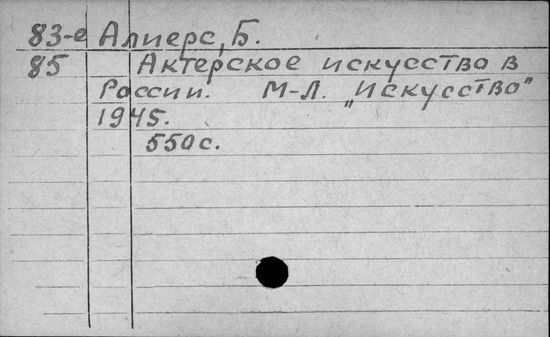 83-е Алперс, Б.
85 Актерское искусство в
России. М-Л. „Искусство"
1945.
550с.